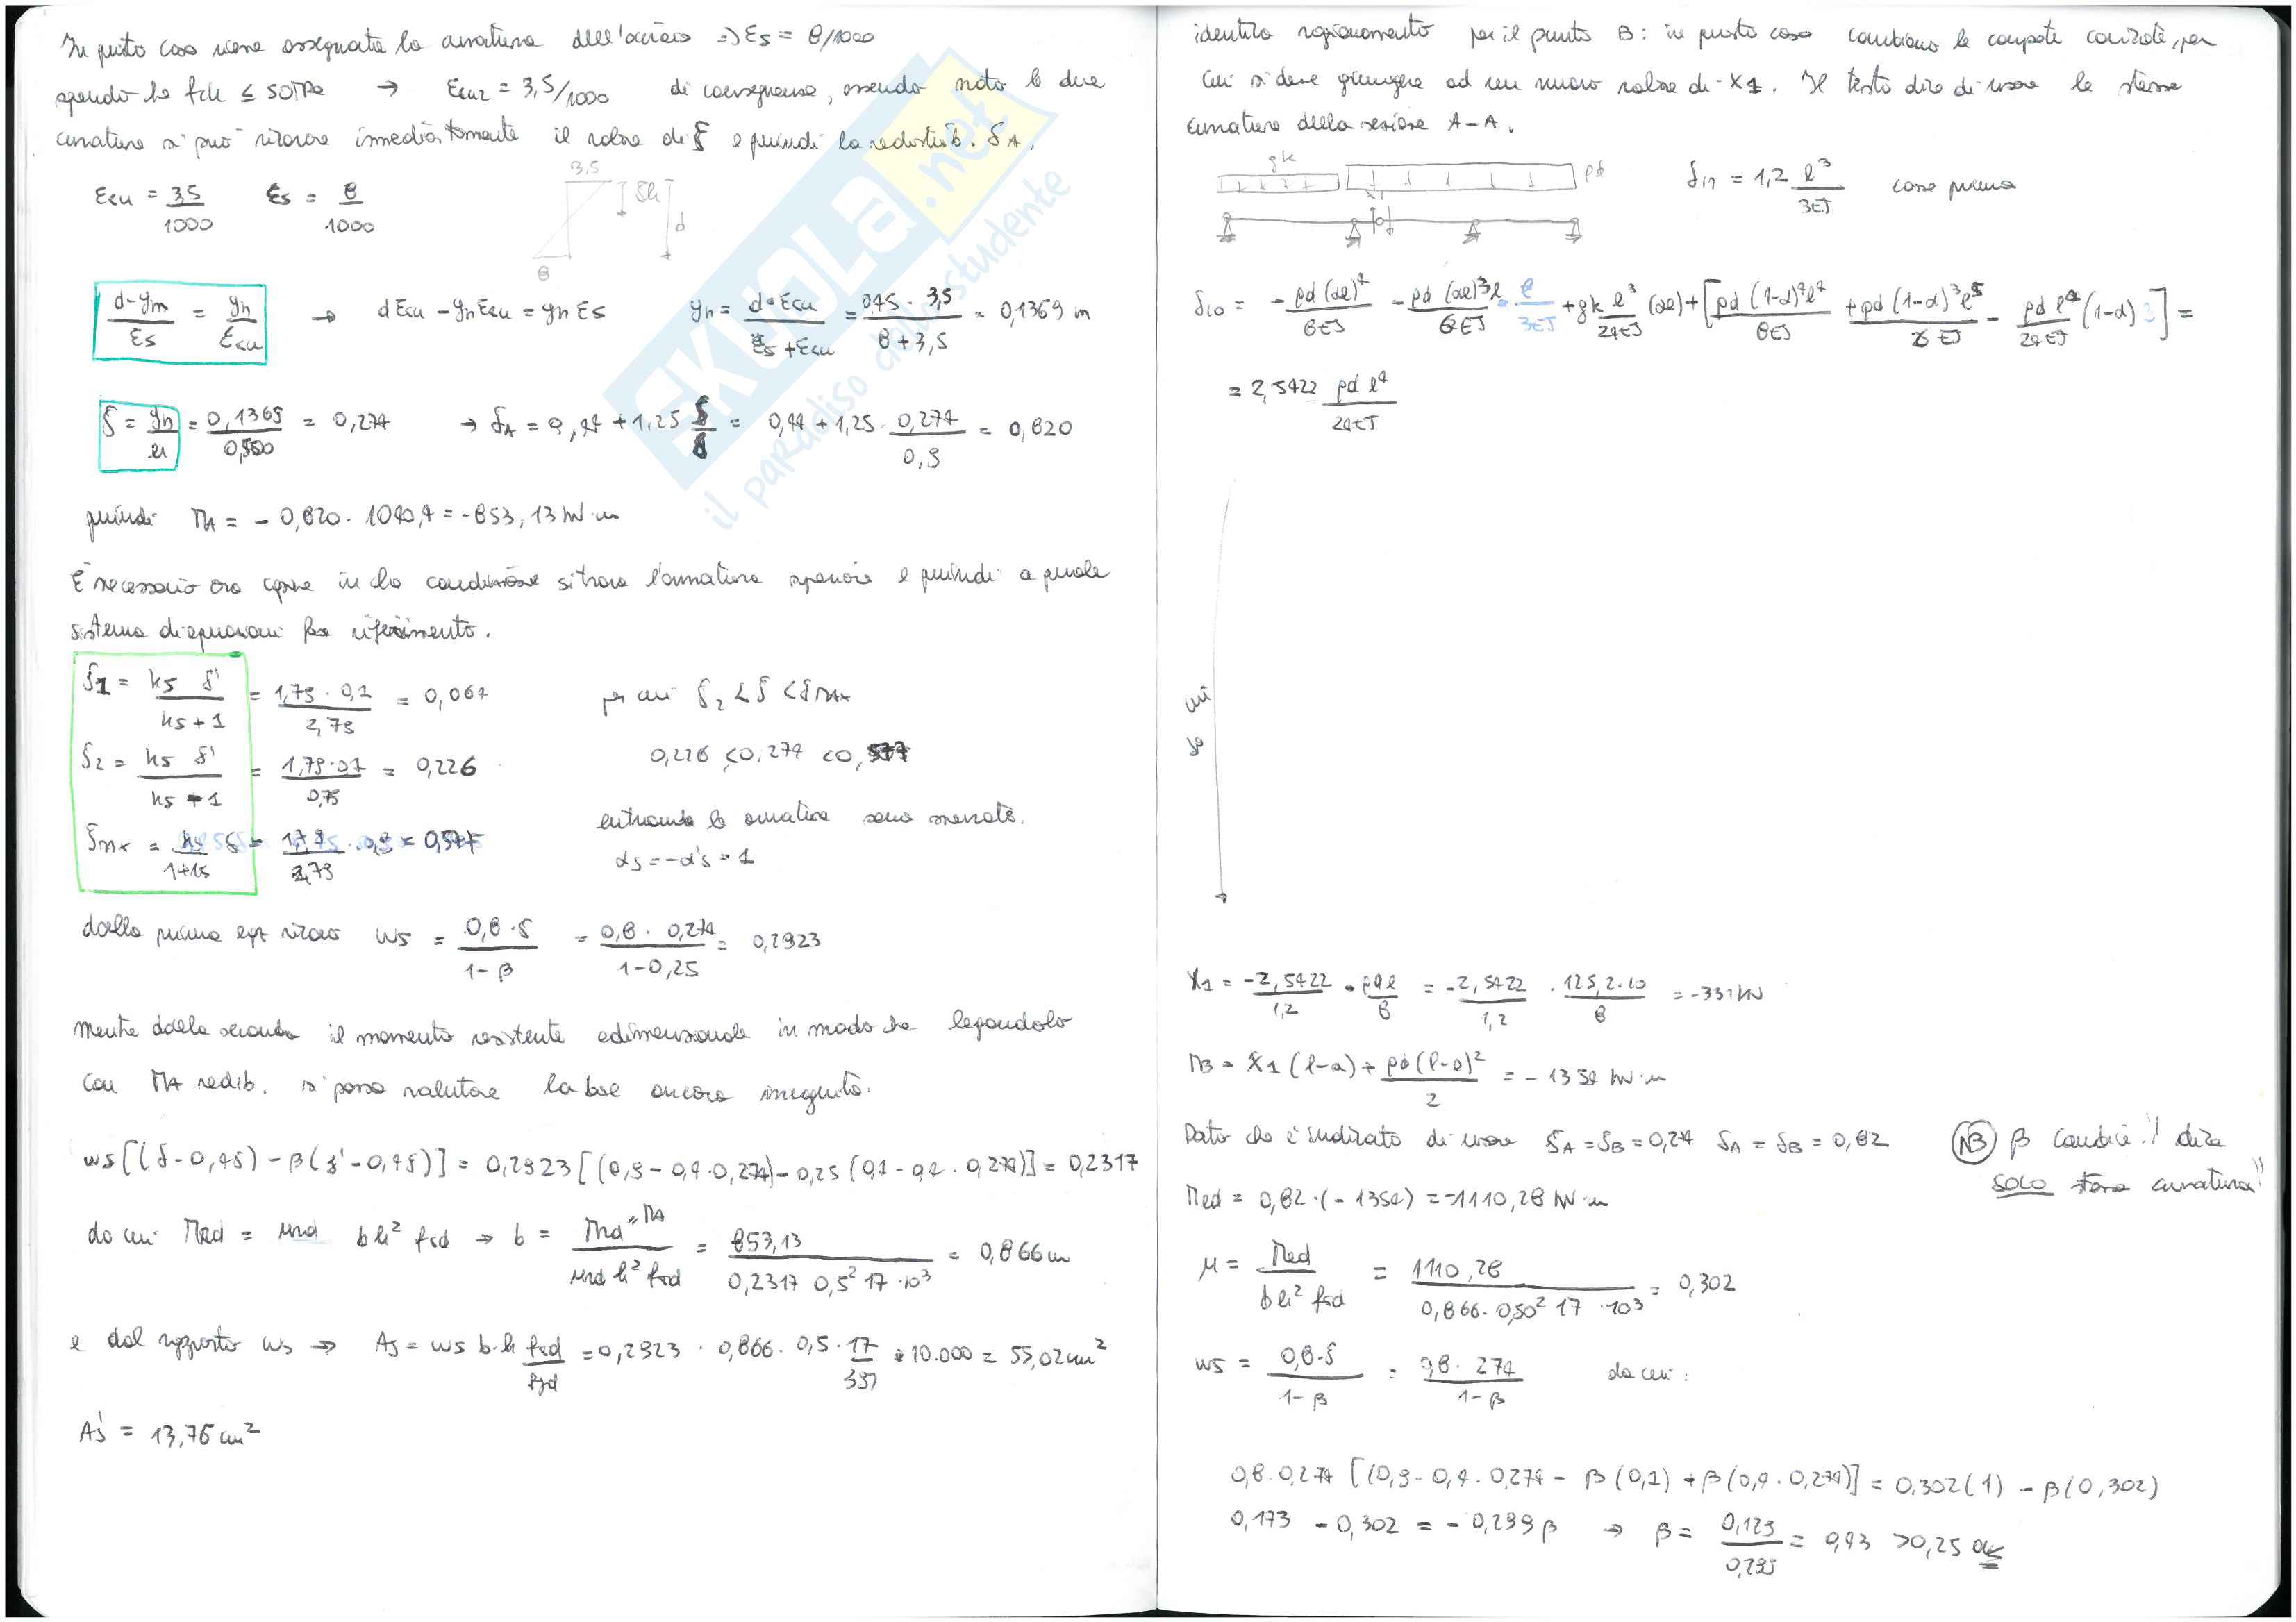 In questo caso viene assegnata la curvatura dell'acciaio => εs = 8/1000
sapendo che fck ≤ 50MPa → εcu2 = 3,5/1000 di conseguenza, essendo note le due
curvature si può ricavare immediatamente il valore di ξ e quindi la redistrib. δA.
εcu = 3,5/1000 εs = 8/1000
3,5
ξh
d
8
(d-yn)/εs = yn/εcu → dεcu - ynεcu = ynεs yn = d·εcu/(εs+εcu) = 0,45·3,5/(8+3,5) = 0,1369 m
ξ = yn/h = 0,1369/0,500 = 0,274 → δA = 0,44 + 1,25 ξ/δ = 0,44 + 1,25·0,274/0,9 = 0,820
quindi MA = -0,820·1040,4 = -853,13 kN·m
È necessario ora capire in che condizione si trova l'armatura superiore e quindi a quale
sistema di equazioni far riferimento.
ξ1 = ks δ'/(ks+1) = 1,79·0,1/2,79 = 0,064 per cui ξ2 < ξ < ξmax
ξ2 = ks δ'/(ks-1) = 1,79·0,1/0,79 = 0,226 0,226 < 0,274 < 0,577
ξmax = ks/(1+ks) δ = 1,79/2,79·0,9 = 0,577 entrambe le armature sono snervate.
αs = -α's = 1
dalla prima eqz ricavo ωs = 0,8·ξ/(1-β) = 0,8·0,274/(1-0,25) = 0,2923
mentre dalla seconda il momento resistente adimensionale in modo che legandolo
con MA redib. si possa valutare la base ancora incognita.
ωs[(δ-0,4ξ)-β(δ'-0,4ξ)] = 0,2923[(0,9-0,4·0,274)-0,25(0,1-0,4·0,274)] = 0,2317
da cui MRd = μrd bh² fcd → b = Mrd=MA/(μrd h² fcd) = 853,13/(0,2317 0,5² 17·10³) = 0,866 m
e dal rapporto ωs → As = ωs b·h fcd/fyd = 0,2923·0,866·0,5·17/391·10.000 = 55,02 cm²
A's = 13,76 cm²
identico ragionamento per il punto B: in questo caso cambiano le campate caricate, per
cui si deve giungere ad un nuovo valore di X1. Il testo dice di usare le stesse
curvature della sezione A-A.
gk pd
X1
δ11 = 1,2 l³/3EJ come prima
δ10 = - pd(αl)⁴/8EJ - pd(αl)³l/6EJ = l/3EJ + gk l³/24EJ (αl) + [pd(1-α)⁴l⁴/8EJ + pd(1-α)³l⁵/6EJ - pd l⁴/24EJ (1-α) 3] =
= 2,5422 pd l⁴/24EJ
X1 = -2,5422/1,2 · pd l/8 = -2,5422/1,2 · 125,2·10/8 = -331 kN
MB = X1(l-a) + pd(l-a)²/2 = -1354 kN·m
Dato che è indicato di usare ξA = ξB = 0,274 δA = δB = 0,82
NB β cambia!! dice
solo stessa curvatura!!
Med = 0,82·(-1354) = -1110,28 kN·m
μ = Med/(bh² fcd) = 1110,28/(0,866·0,50² 17·10³) = 0,302
ωs = 0,8·ξ/(1-β) = 0,8·274/(1-β) da cui:
0,8·0,274 [(0,9-0,4·0,274 - β(0,1) + β(0,4·0,274)] = 0,302(1) - β(0,302)
0,173 - 0,302 = -0,299β → β = 0,129/0,299 = 0,43 > 0,25 ok
SKUOLA.net
il paradiso dello studente